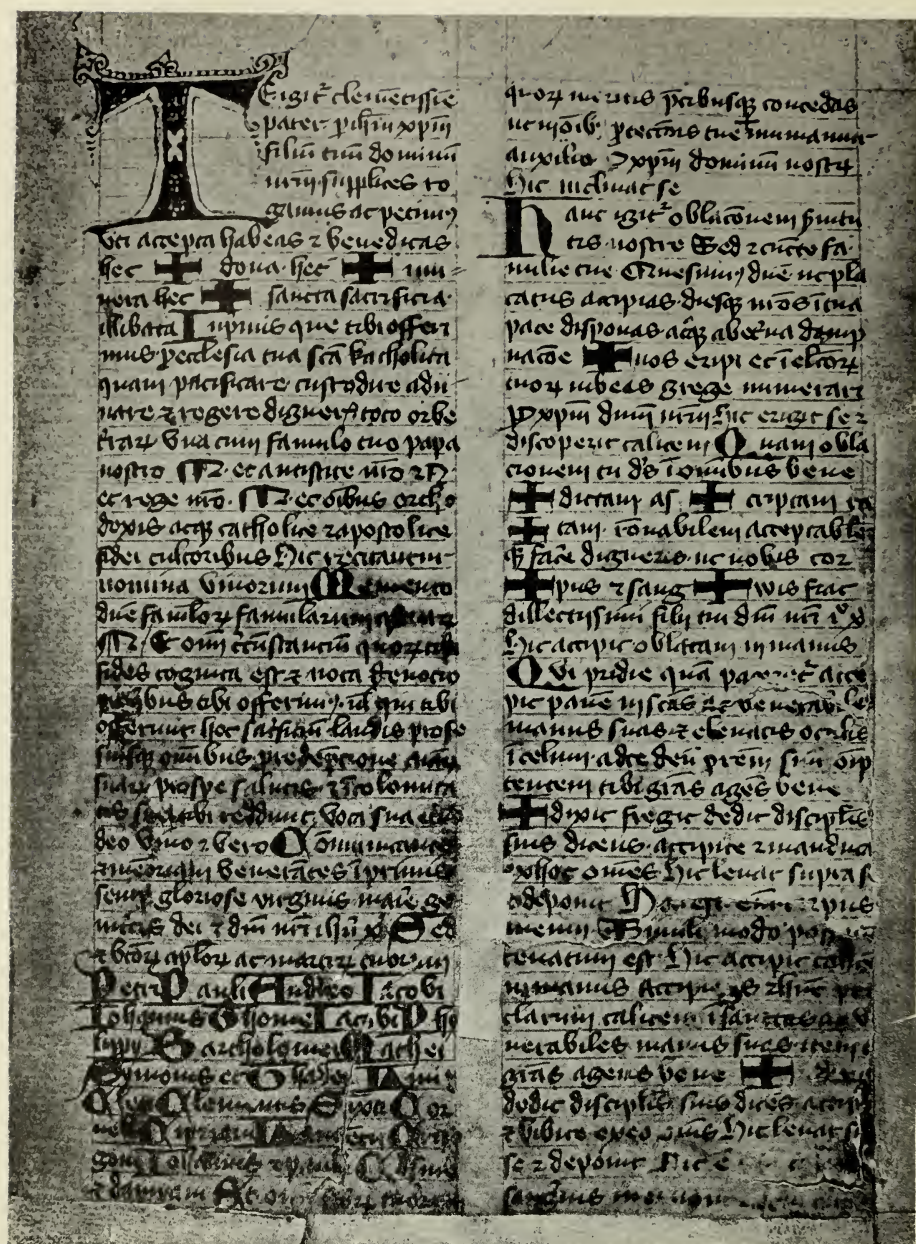 T E igit᷑ clemētissīe
pater p ihm xpm
filiū tuū dominū
nrm supplices ro
gamus ac petimꝰ
Vti accepta habeas ⁊ benedicas
hec ✚ dona hec ✚ mu
nera hec ✚ sancta sacrificia
illibata Inprimis que tibi offeri
mus p ecclesia tua scā katholica
quam pacificare custodire adu
nare ⁊ regere digneris toto orbe
trarꝝ Vna cum famulo tuo papa
nostro N et antistite nro ⁊ N
et rege nro N et oibus ortho
doxis atqꝫ catholice ⁊ apostolice
fidei cultoribus Hic recitantur
nomina vivorum Memento
dne famulorꝝ famularum
N Et oīm circūstanciū quorꝝ tibi
fides cognita est ⁊ nota devocio
quibus tibi offerimꝰ vl qui tibi
offerunt hec sacrificiū laudis p se
suisqꝫ omnibus p redēpcione aīarꝝ
suarꝝ p spe salutis ⁊ īcolomita
tis sue tibi reddunt vota sua etno
deo vivo ⁊ vero Cōmunicantes
⁊ memoriam venerātes īprimis
semp gloriose virginis marie ge
nitricis dei ⁊ dni nri ihu x Sed
⁊ btorꝝ aplorꝝ ac martirꝝ tuorum
Petri Pauli Andree Iacobi
Iohannis Thome Iacobi Phi
lippi Bartholomei Mathei
Symonis et Thadei Lini
Cleti Clementis Sixti Cor
nelii Cipriani Laurēcii Criso
goni Iohannis ⁊ pauli Cosme
⁊ damiani Et oīm scorꝝ tuorꝝ
quorꝝ meritis pcibusqꝫ concedas
ut in oib ptectōis tue muniamur
auxilio p xpm dominū nostrꝝ
Hic inclinat se
Hanc igit᷑ oblacōnem ſvitu
tis nostre Sed ⁊ cūcte fa
milie tue Quesumꝰ dne ut pla
catus accipias diesqꝫ nros ī tua
pace disponas atqꝫ ab etna dāmp
nacōe ✚ nos eripi et ī elcorꝝ
tuorꝝ iubeas grege numerari
P xpm dnm nrm Hic erigit se ⁊
discoperit calicem Quam obla
cionem tu ds ī omnibus bene
✚ dictam as ✚ criptam ra
✚ tam rōnabilem acceptabilē
qꝫ facē digneris ut nobis cor
✚ pus ⁊ sang ✚ wis fiat
dillectissimi filii tui dni nri i x
Hic accipit oblatam in manus
Qvi pridie quā pateret᷑ acce
pit panē in scās ⁊ venerabiles
manus suas ⁊ elevatis oculis
ī celum ad te deū prem suū oīp
tentem tibi grās agēs bene
✚ dixit fregit dedit discipulis
suis dicens accipite ⁊ manduca
ex hoc omēs Hic levat supra se
⁊ deponit Hoc est enim corpus
meum Simili modo postqꝫ
cenatum est Hic accipit calicē
in manus Accipiēs ⁊ hūc pre
clarum calicem ī sanctas ac ve
nerabiles manus suas item
grās agens bene ✚ dixit
dedit discipulis suis dicēs accipite
⁊ bibite ex eo omēs Hic levat su
se ⁊ deponit Hic ē
sanguinis mei